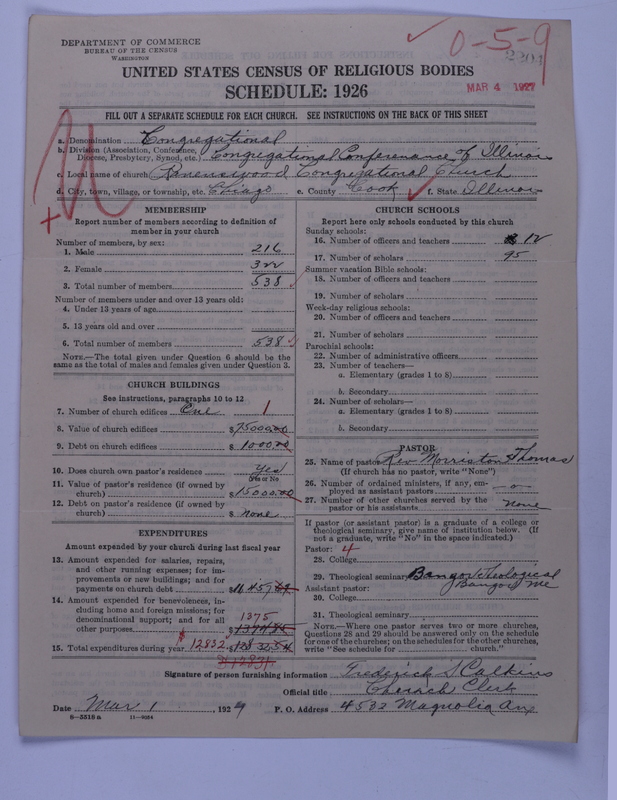 DEPARTMENT OF COMMERCE
BUREAU OF THE CENSUS
WASHINGTON
0-5-9
MAR 4 1927
UNITED STATES CENSUS OF RELIGIOUS BODIES
SCHEDULE: 1926
FILL OUT A SEPARATE SCHEDULE FOR EACH CHURCH. SEE INSTRUCTIONS ON THE BACK OF THIS SHEET
a. Denomination Congregational
b. Division (Association, Conference, Diocese, Presbytery, Synod, etc.) Congregational Conferenance of Illinois
c. Local name of church Ravenswood Congregational Church
d. City, town, village, or township, etc. Chiago e. County Cook f. State Illinois
MEMBERSHIP
Report number of members according to definition of
member in your church
Number of members, by sex:
1. Male 216
2. Female 322
3. Total number of members 538
Number of members under and over 13 years old:
4. Under 13 years of age
5. 13 years old and over
6. Total number of members 538
NOTE.—The total given under Question 6 should be
same as the total of males and females given under Question 3.
CHURCH BUILDINGS
See instructions, paragraphs 10 to 12
7. Number of church edifices One 1
8. Value of church edifices $75000.00
9. Debt on church edifices $1000.00
10. Does church own pastor's residence Yes
Yes or No
11. Value of pastor's residence (if owned by
church) $15000.00
12. Debt on pastor's residence (if owned by
church) $ none
EXPENDITURES
Amount expended by your church during last fiscal year
13. Amount expended for salaries, repairs,
and other running expenses; for im-
provements or new buildings; and for
payments on church debt
14. Amount expended for benevolences, in-
cluding home and foreign missions; for
denominational support; and for all
other purposes 1375
15. Total expenditures during year $12832
CHURCH SCHOOLS
Report here only schools conducted by this church
Sunday schools:
16. Number of officers and teachers 12
17. Number of scholars 95
Summer vacation Bible schools:
18. Number of officers and teachers
19. Number of scholars
Week-day religious schools:
20. Number of officers and teachers
21. Number of scholars
Parochial schools:
22. Number of administrative officers
23. Number of teachers—
a. Elementary (grades 1 to 8)
b. Secondary
24. Number of scholars—
a. Elementary (grades 1 to 8)
b. Secondary
PASTOR
25. Name of pastor Rev Morriston Thomas
(If church has no pastor, write "None")
26. Number of ordained ministers, if any, em-
ployed as assistant pastors —o—
27. Number of other churches served by the
pastor or his assistants none
If pastor (or assistant pastor) is a graduate of a college or
theological seminary, give name of institution below. (If
not a graduate, write "No" in the space indicated.)
Pastor: 4
28. College
29. Theological seminary Bangor Theological
Assistant pastor: Bangor Me
30. College
31. Theological seminary
NOTE.—Where one pastor serves two or more churches,
Questions 28 and 29 should be answered only on the schedule
for one of the churches; on the schedules for the other churches,
write "See schedule for church."
Signature of person furnishing information Frederick S Calkins
Official title Church Clerk
Date Mar 1, 192
P. O. Address 4532 Magnolia Ave
8—5518a 11—9084